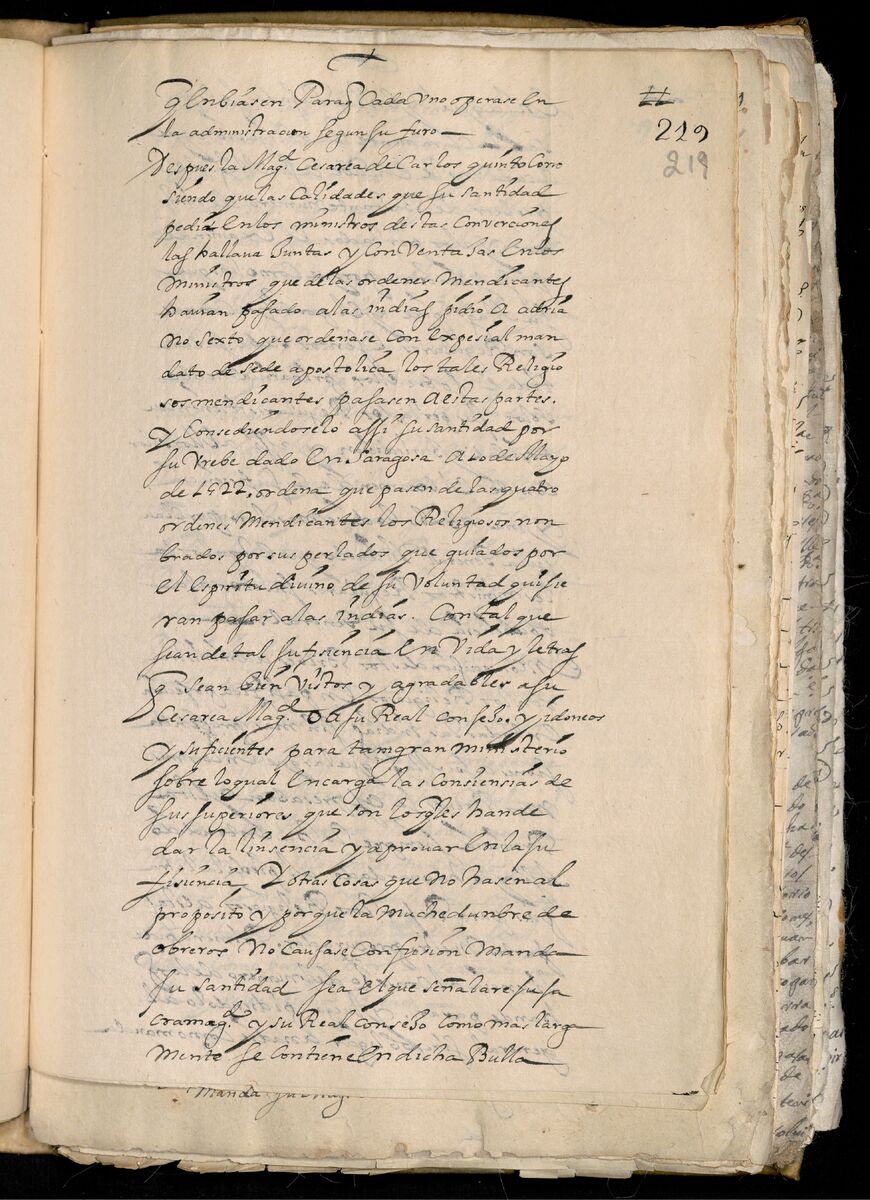 q̃ Enbiasen Paraq̃ Cada Vno operase En
la administracion segun su furo —
Despues la Magᵈ. Cesarea de Carlos quinto Cono
siendo que las Calidades que su santidad
pedia En los ministros destas Converciones
las hallava Juntas y Con Ventajas En los
Ministros que de las ordenes Mendicantes
havian pasado alas indias pidio A adria
no Sexto que ordenase con Expesial man
dato de sede apostolica los tales Religio
sos mendicantes pasasen A estas partes.
y Consediendoselo assi su santidad por
su Vrebe dado En Saragosa A 10 de Mayo
de 1522. ordena que pasen de las quatro
ordenes Mendicantes los Religiosos non
brados por sus perlados que guiados por
el Espiritu divino de su Voluntad quisie
ran pasar alas indias. Con tal que
sean de tal sufisiencia En Vida y letras
q̃ sean bien Vistos y agradables a su
Cesarea Magᵈ. O a su Real Consejo. y idoneos
y suficientes para tam gran ministerio
sobre lo qual Encarga las Consiensias de
sus superiores que son los q̃les han de
dar la linsencia y aprovar En la su
fisiencia, Y otras Cosas que No hasen al
proposito y porque la Muchedunbre de
obreros No Causase Confusion Manda
su santidad sea el que señalare su sa
cra magᵈ. y su Real Consejo Como mas larga
mente se Contiene En dicha Bulla
Manda su
219
219